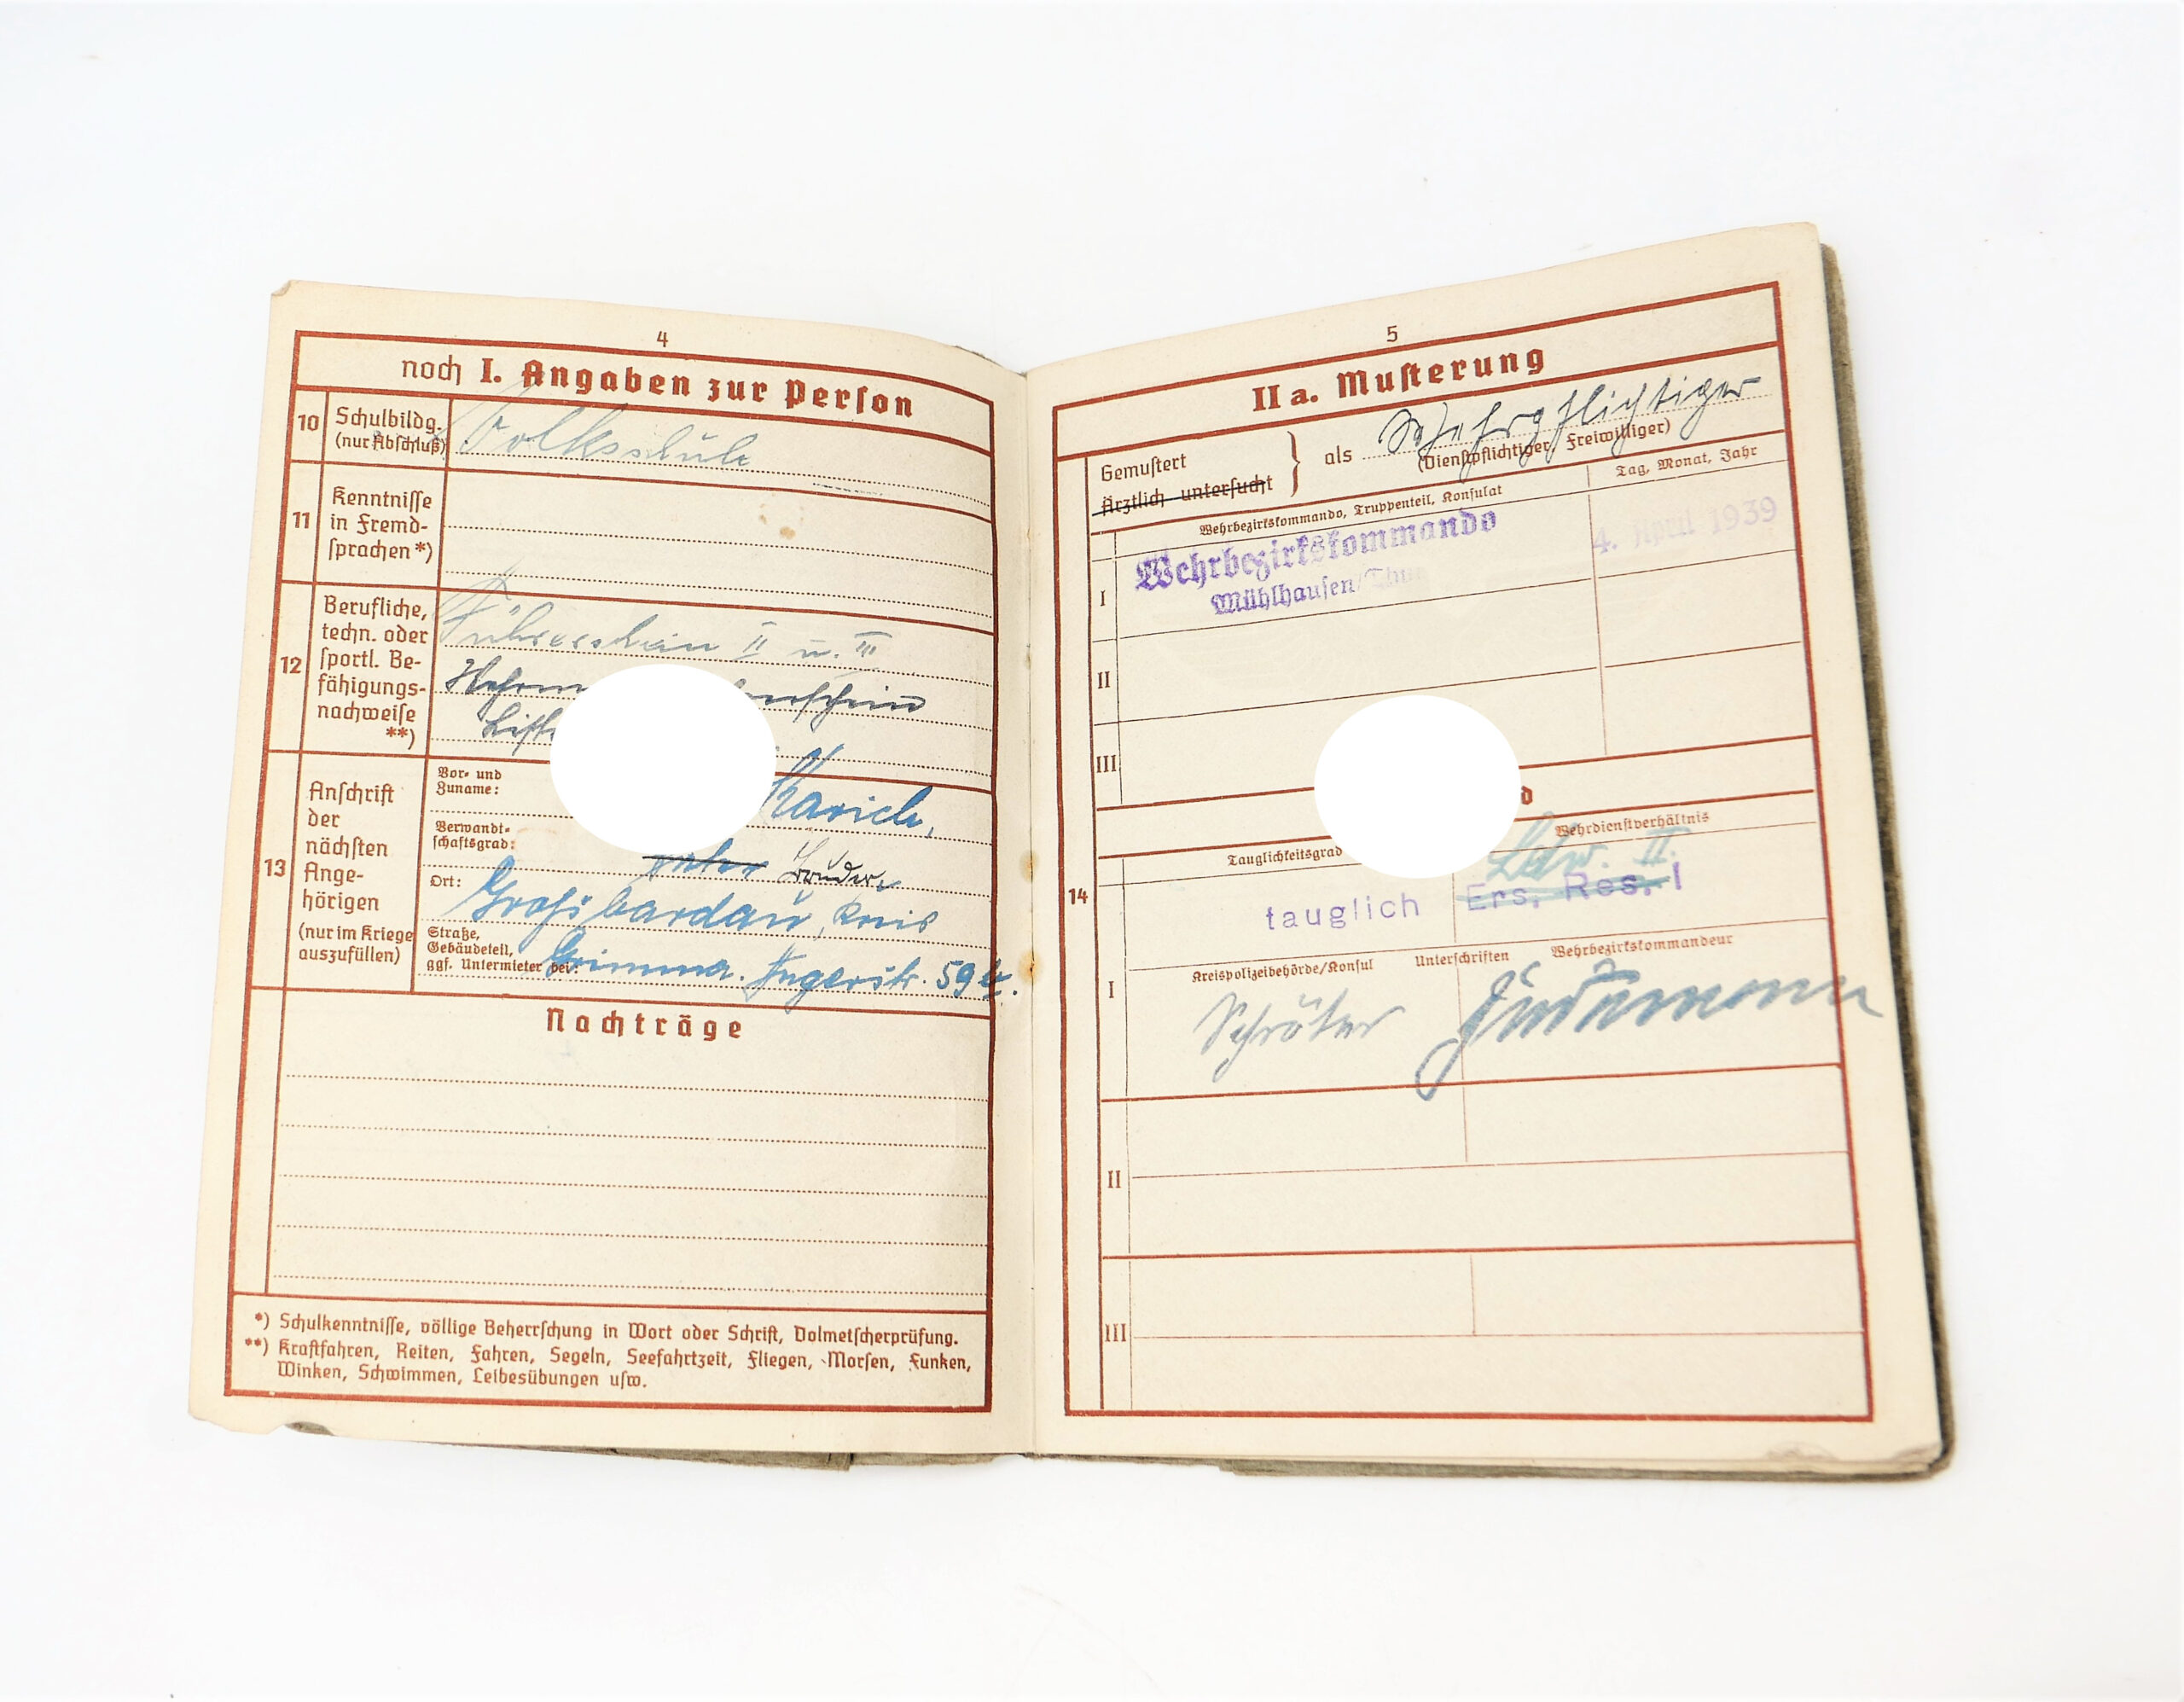 4
noch I. Angaben zur Person
10
Schulbildg.
(nur Abschluß)
Volksschule
11
Kenntnisse
in Fremd-
sprachen *)
12
Berufliche,
techn. oder
sportl. Be-
fähigungs-
nachweise
**)
Führerschein II u. III
13
Anschrift
der
nächsten
Ange-
hörigen
(nur im Kriege
auszufüllen)
Vor- und
Zuname:
Verwandt-
schaftsgrad:
Vater Bruder
Ort:
Großbardau, Kreis
Straße,
Gebäudeteil,
ggf. Untermieter bei:
Grimma. Angerstr. 59
Nachträge
*) Schulkenntnisse, völlige Beherrschung in Wort oder Schrift, Dolmetscherprüfung.
**) Kraftfahren, Reiten, Fahren, Segeln, Seefahrtzeit, Fliegen, Morsen, Funken,
Winken, Schwimmen, Leibesübungen usw.
5
II a. Musterung
Gemustert
Ärztlich untersucht
als Wehrpflichtiger
(Dienstpflichtiger, Freiwilliger)
Wehrbezirkskommando, Truppenteil, Konsulat
Tag, Monat, Jahr
I
Wehrbezirkskommando
Mühlhausen/Thür
4. April 1939
II
III
14
Tauglichkeitsgrad
Wehrdienstverhältnis
Ldw. II.
tauglich
Ers. Res. I
Kreispolizeibehörde/Konsul
Unterschriften
Wehrbezirkskommandeur
I
Schröter
II
III